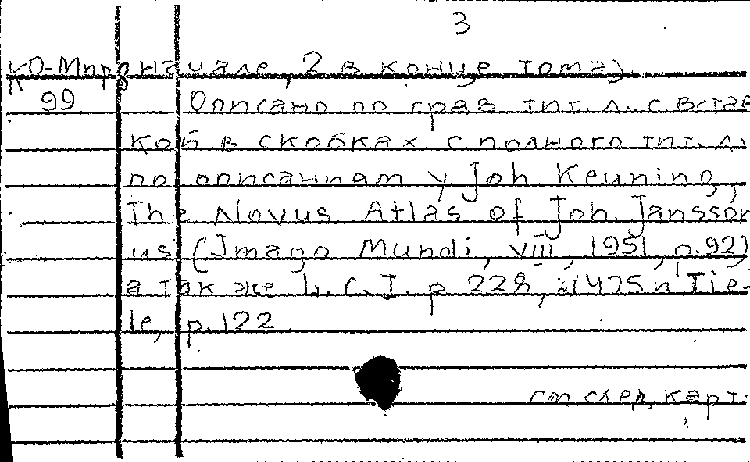 3
КО-Мир в начале, 2 в конце тома).
99 Описано по грав. тит. л. с встав
кой в скобках с полного тит. л.
по описаниям у Joh Keuning,
The Novus Atlas of Joh Jansson
us (Imago Mundi, VIII, 1951, p.92)
а так же L.C.I. p 228, 1475 и Tie-
le, p.122
см след. карт.